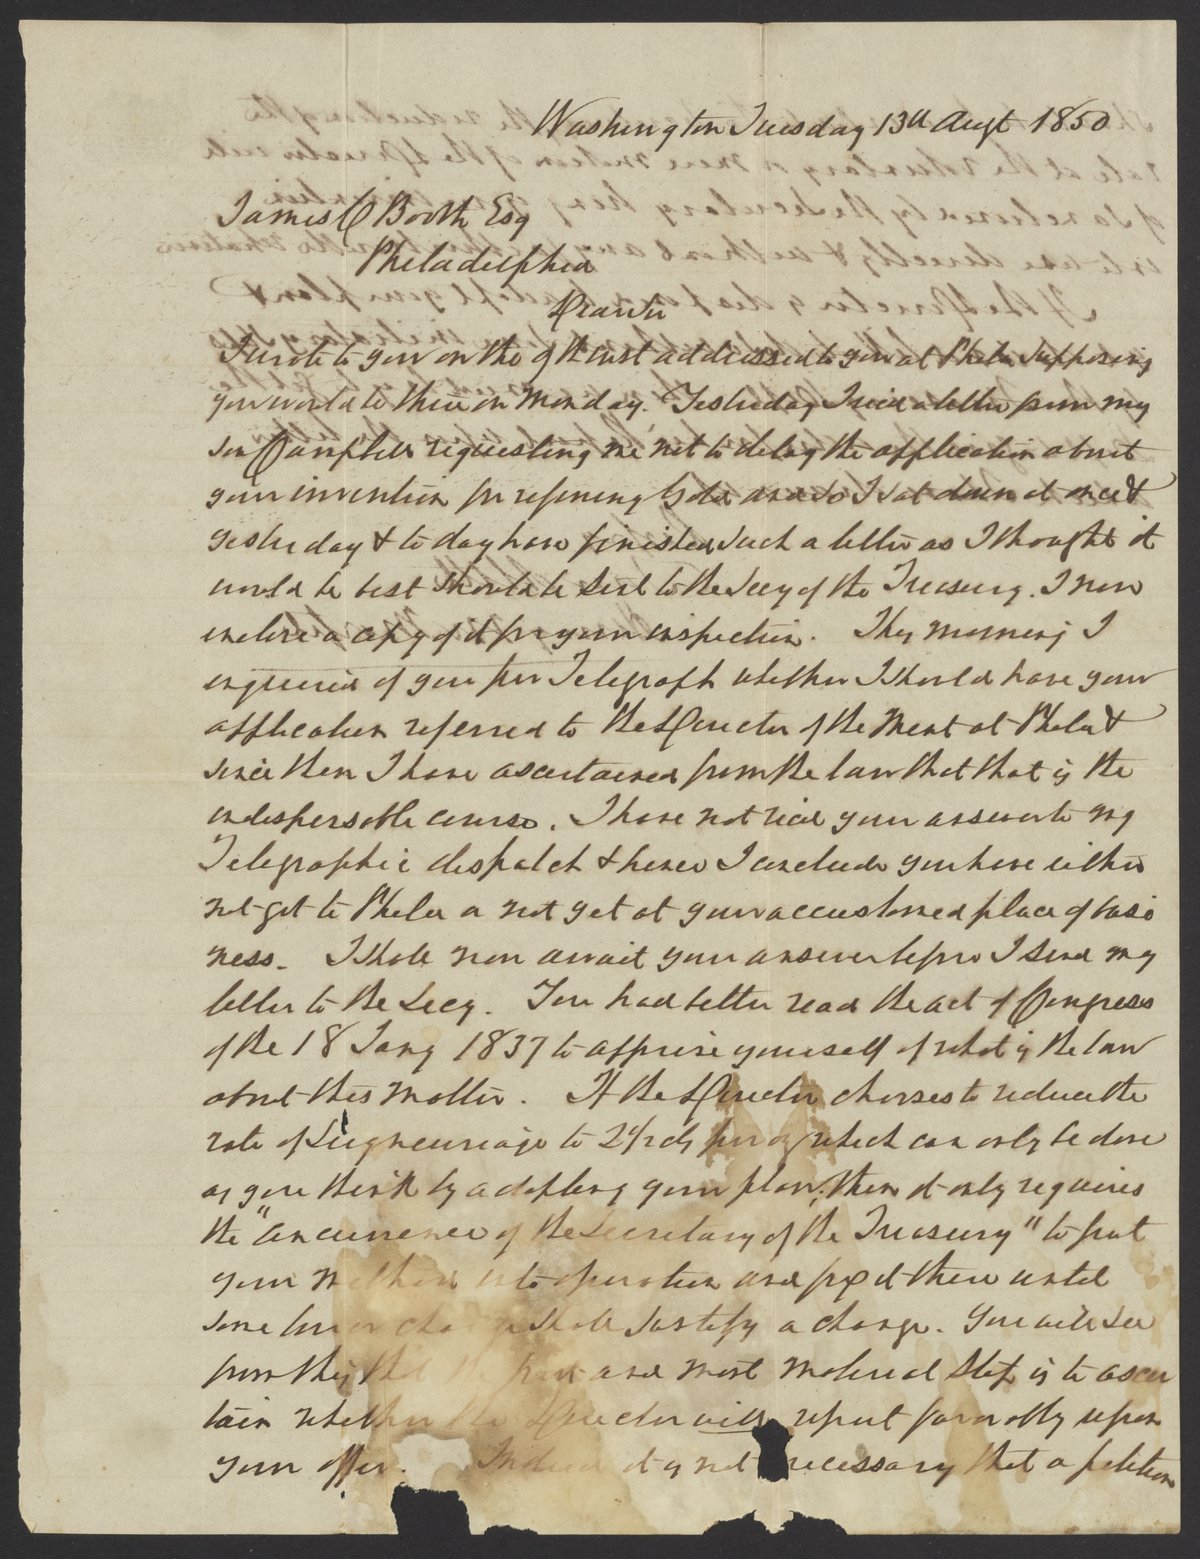 Washington Tuesday 13th Augt 1850
James C Booth Esq
Philadelphia
Dear Sir
I wrote to you on the 9th inst addressed to you at Phila supposing
you would be there on Monday. Yesterday I recd a letter from my
son Campbell requesting me not to delay the application about
your invention for refining Gold and so I sat down at once &
yesterday & to day have finished such a letter as I thought it
would be best should be sent to the Secy of the Treasury. I now
enclose a copy of it for your inspection. This morning I
enquired of you per Telegraph whether I should have your
application referred to the Director of the Mint at Phila &
since then I have ascertained from the law that that is the
indispensable course. I have not recd your answer to my
Telegraphic dispatch & hence I conclude you have either
not got to Phila or not yet at your accustomed place of busi
ness. I shall now await your answer before I send my
letter to the Secy. You had better read the act of Congress
of the 18 Jany 1837 to apprise yourself of what is the law
about this matter. If the Director chooses to reduce the
rate of Seigneuriage to 2 1/2 cts per oz which can only be done
as you think by adopting your plan, then it only requires
the "concurrence of the Secretary of the Treasury" to put
your method into operation and fix it there until
some further change shall justify a change. You will see
from this that the first and most material step is to ascer
tain whether the Director will report favorably upon
your offer. Indeed it is not necessary that a petition